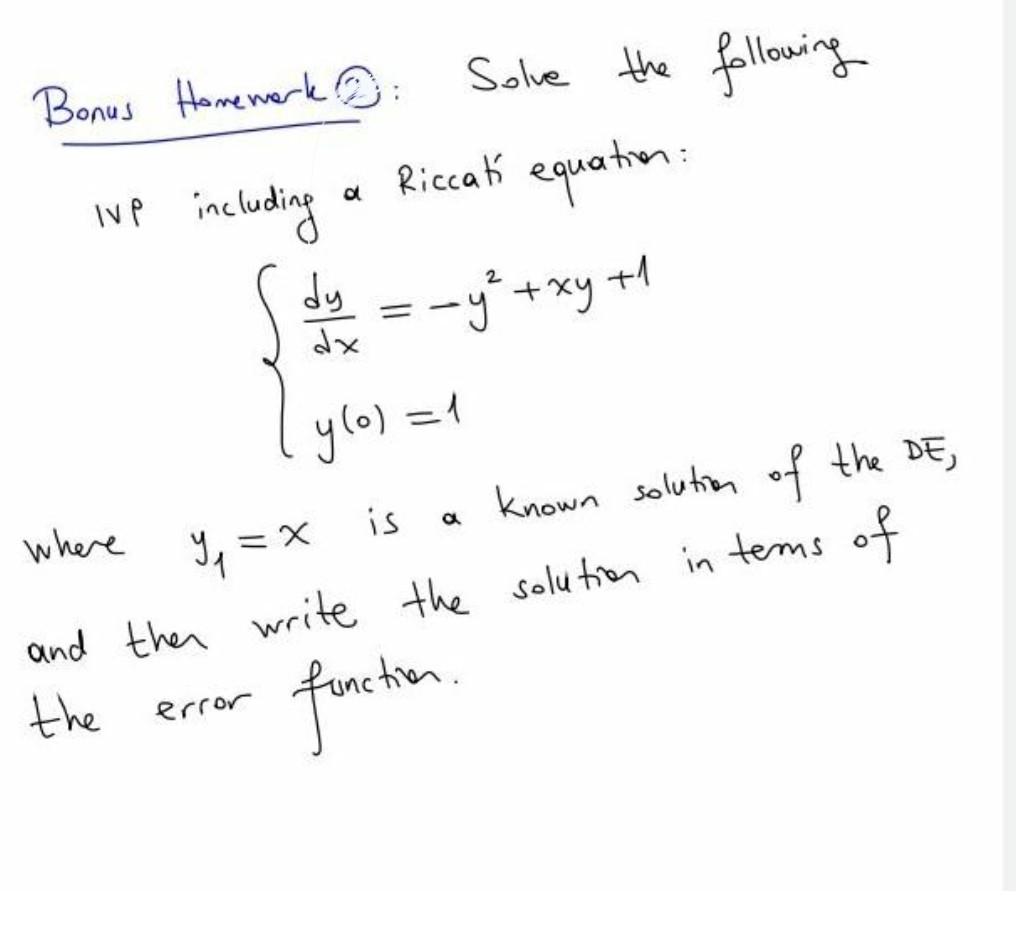 Bonus Homework ②: Solve the following
IVP including a Riccati equation:
dy/dx = -y² + xy + 1
y(0) = 1
where y₁ = x is a known solution of the DE,
and then write the solution in terms of
the error function.